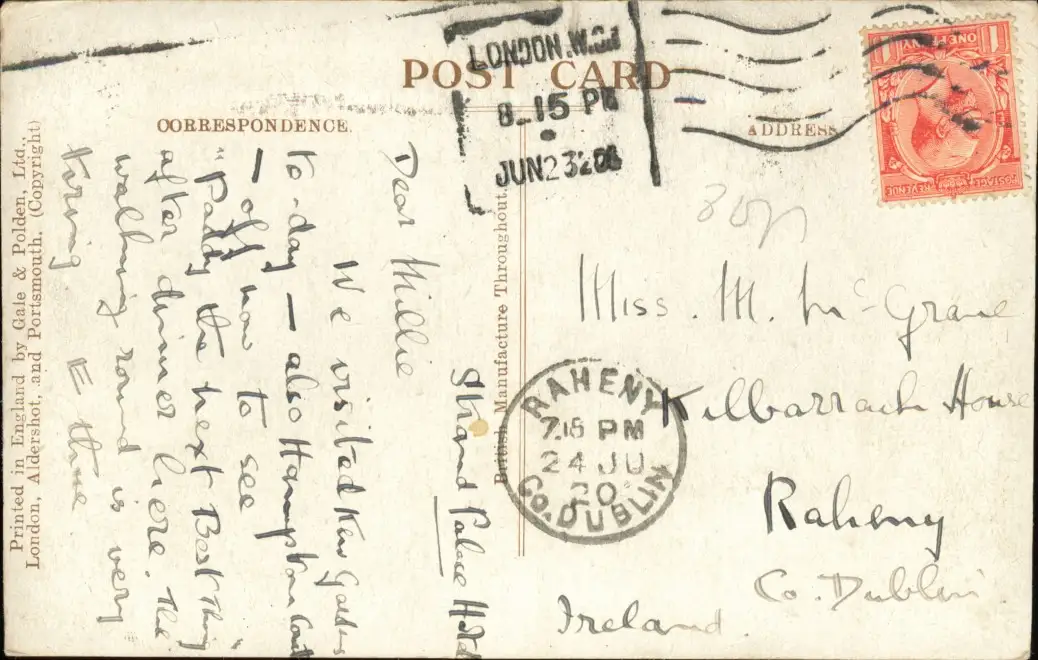 POST CARD
CORRESPONDENCE.
ADDRESS
LONDON. W.C.
8.15 PM
JUN 23
20
ONE PENNY
1
1
POSTAGE
REVENUE
Strand Palace Hotel
Dear Millie
We visited Kew Gardens
to-day — also Hampton Court
— off now to see
"Paddy the next Best Thing"
after dinner here. The
walking round is very
tiring
Miss. M. McGrane
Kilbarrack House
Raheny
Co. Dublin
Ireland.
RAHENY
7.15 PM
24 JU
20
CO. DUBLIN
British Manufacture Throughout.
Printed in England by Gale & Polden, Ltd.,
London, Aldershot, and Portsmouth. (Copyright)